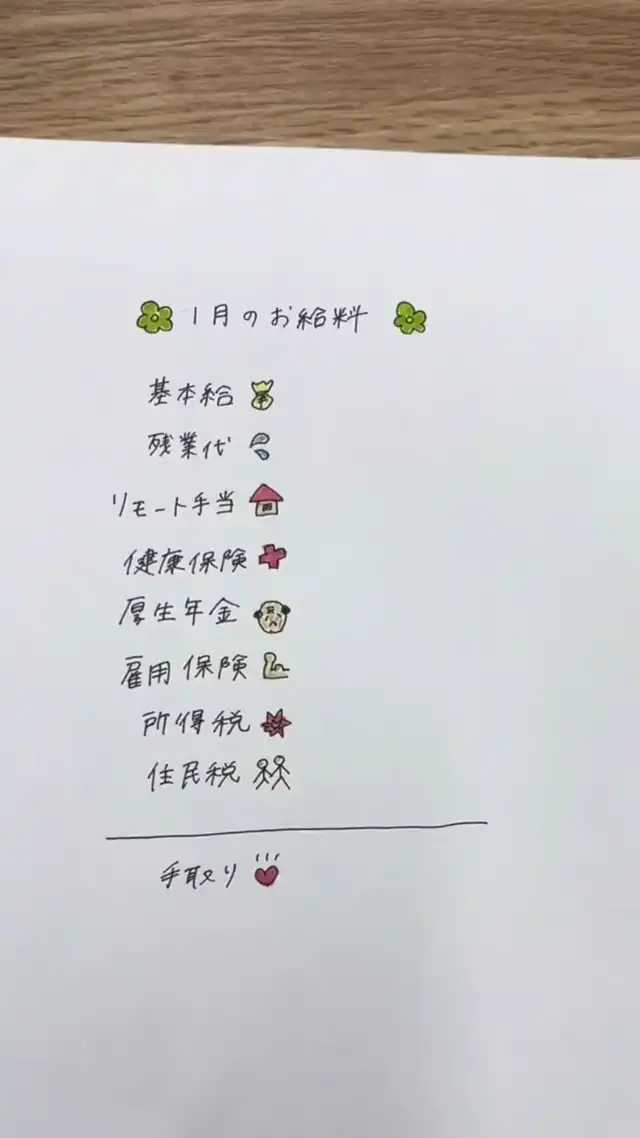 1月のお給料
基本給
残業代
リモート手当
健康保険
厚生年金
雇用保険
所得税
住民税
手取り